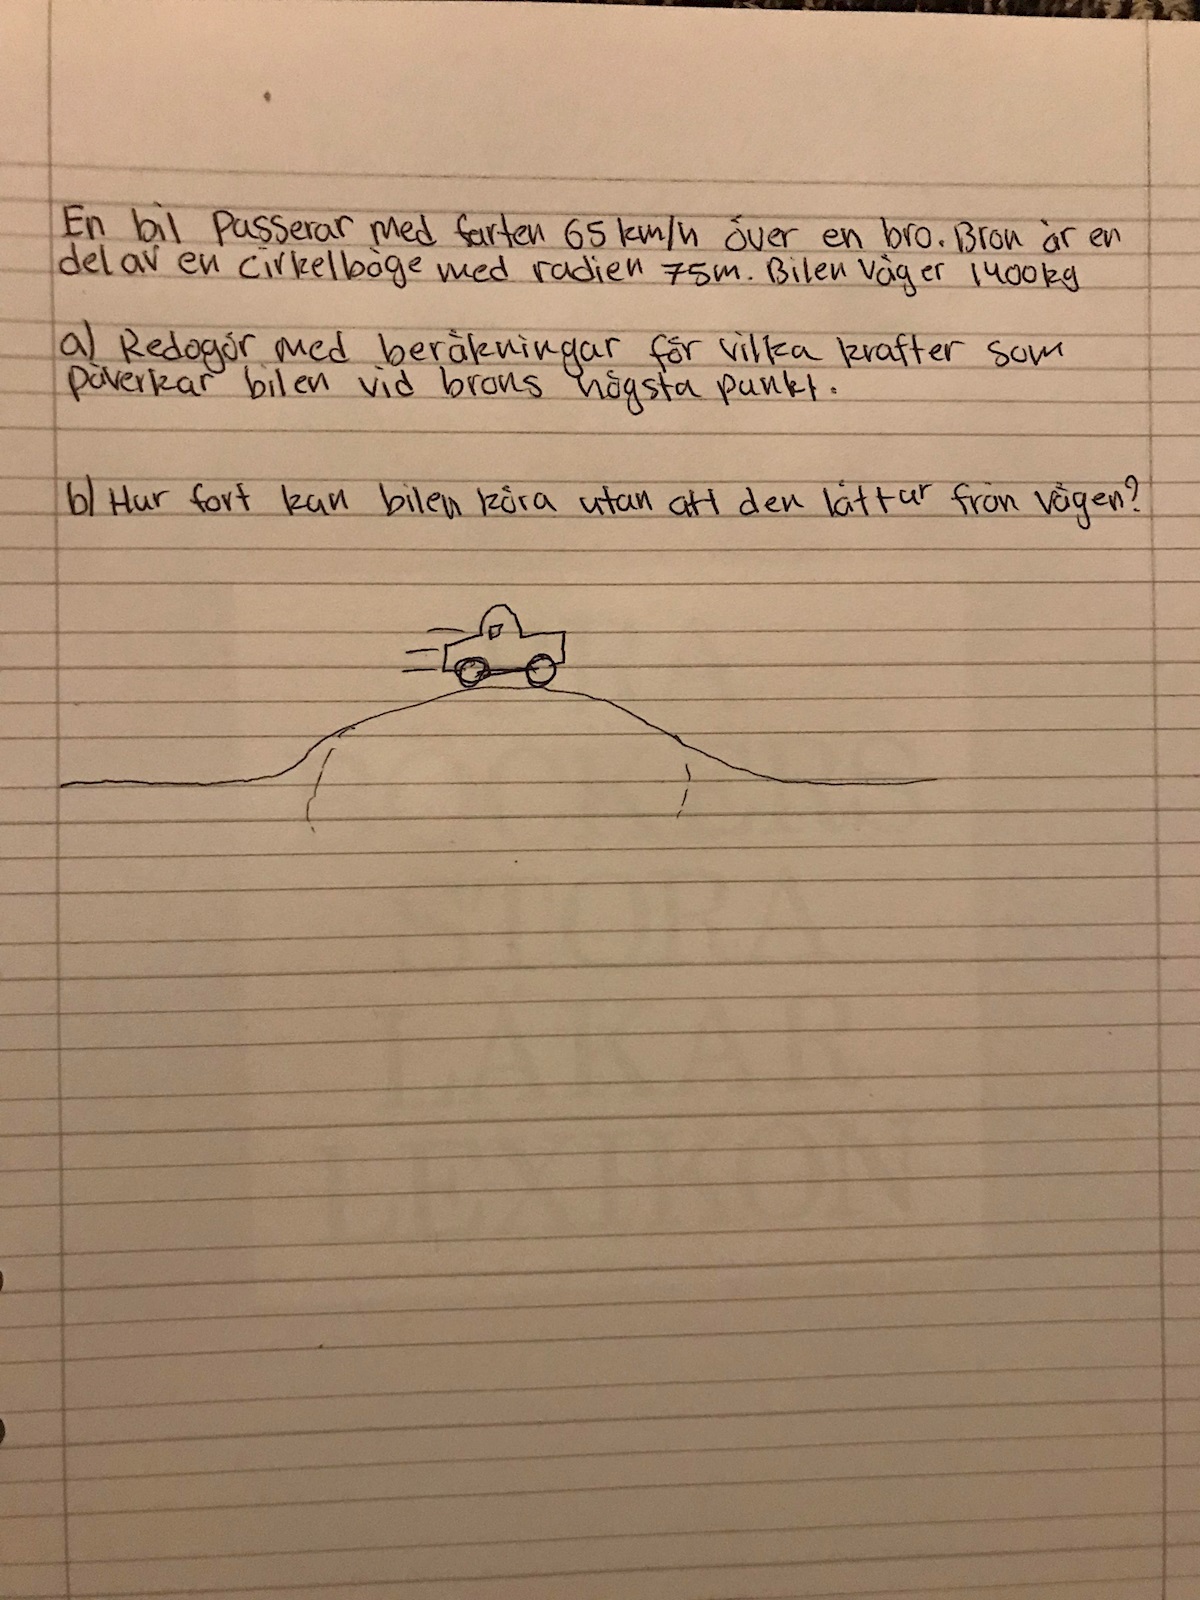 En bil Passerar med farten 65 km/h över en bro. Bron är en
del av en cirkelbåge med radien 75m. Bilen väger 1400kg
a) Redogör med beräkningar för vilka krafter som
påverkar bilen vid brons högsta punkt.
b) Hur fort kan bilen köra utan att den lättar från vägen?
STORA
LÄKAR
LEXIKON